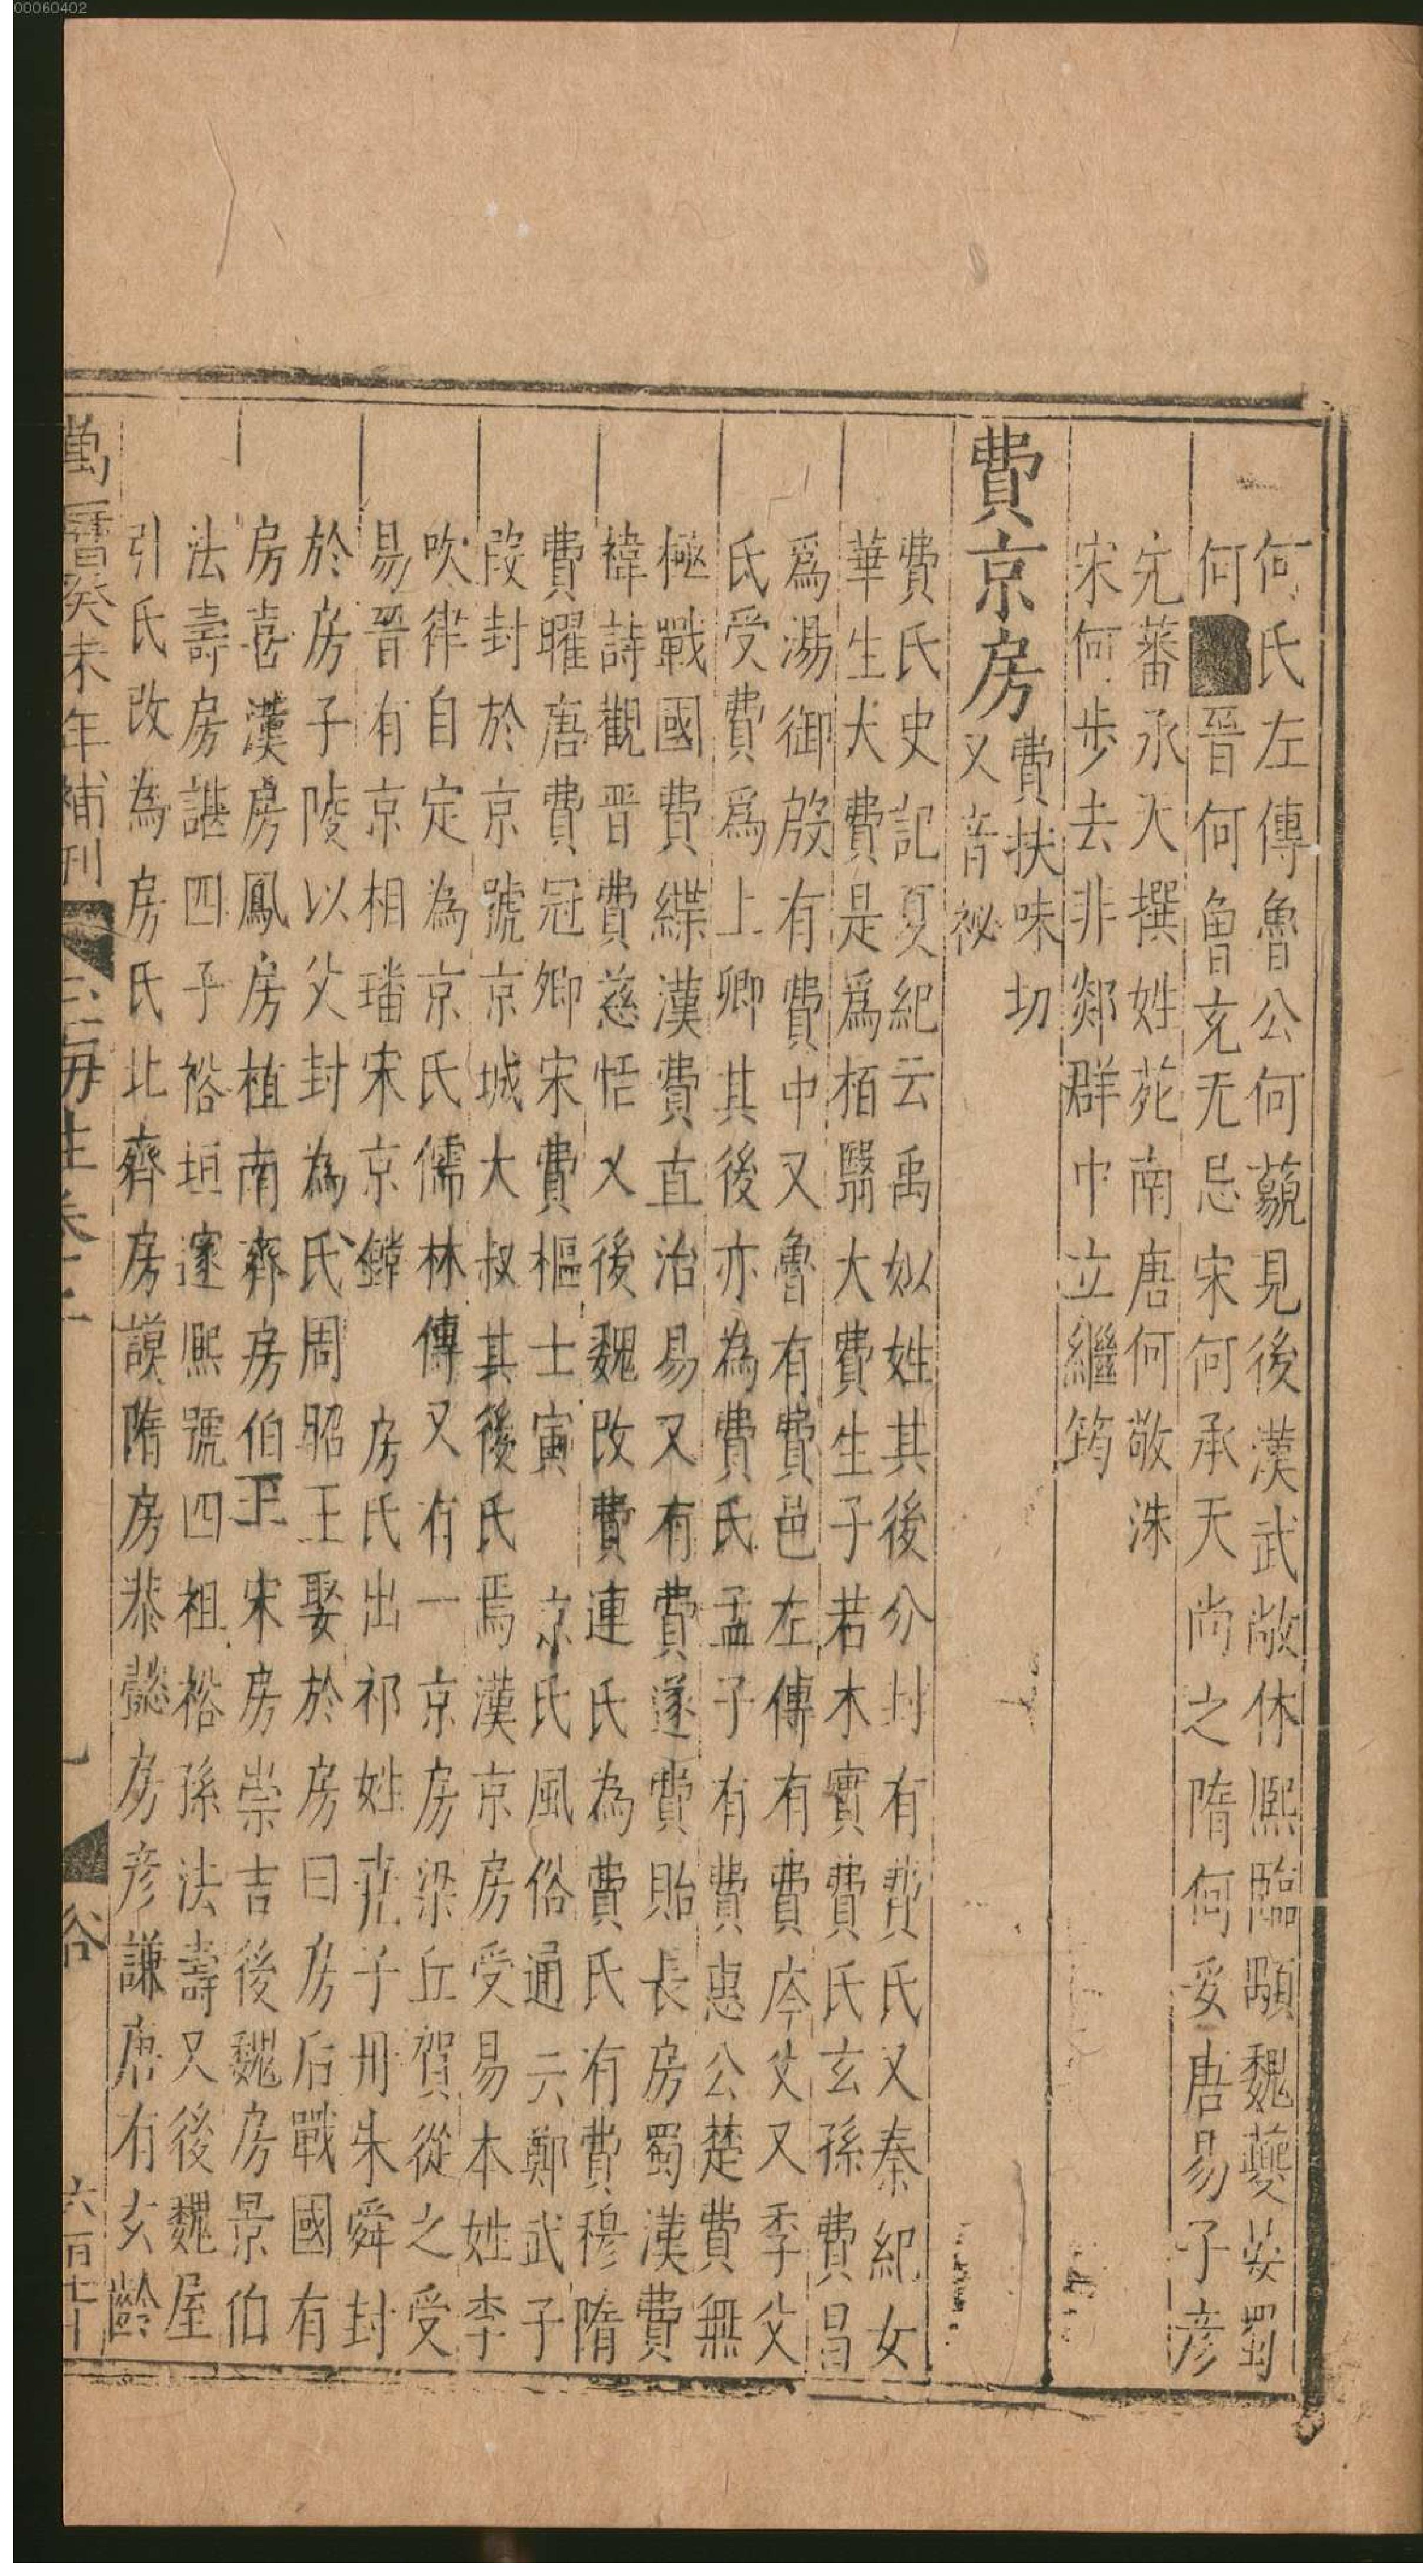 00060402
何氏左傳魯公何藐見後漢武敞休熈臨顒魏夔晏蜀
何晉何曾充无忌宋何承天尚之隋何妥唐易子彦
先蕃承天撰姓苑南唐何敬洙
宋何步去非郯群中立繼筠
費京房費扶味切
又音祕
費氏史記夏紀云禹姒姓其後分封有費氏又秦紀女
華生大費是爲栢翳大費生子若木實費氏玄孫費昌
爲湯御殷有費中又魯有費邑左傳有費庈父又季父
氏受費爲上卿其後亦為費氏孟子有費惠公楚費無
極戰國費緤漢費直治易又有費遂費貽長房蜀漢費
禕詩觀晉費慈恬又後魏改費連氏為費氏有費穆隋
費曜唐費冠卿宋費樞士寅　京氏風俗通云鄭武子
段封於京號京城大叔其後氏焉漢京房受易本姓李
吹律自定為京氏儒林傳又有一京房梁丘賀從之受
易晉有京相璠宋京鏜　房氏出祁姓堯子丹朱舜封
於房子陵以父封為氏周昭王娶於房曰房后戰國有
房喜漢房鳳房植南齊房伯玉宋房崇吉後魏房景伯
法壽房諶四子裕坦邃熈號四祖裕孫法壽又後魏屋
引氏改為房氏北齊房謨隋房恭懿房彦謙唐有玄齡
萬曆癸未年補刊